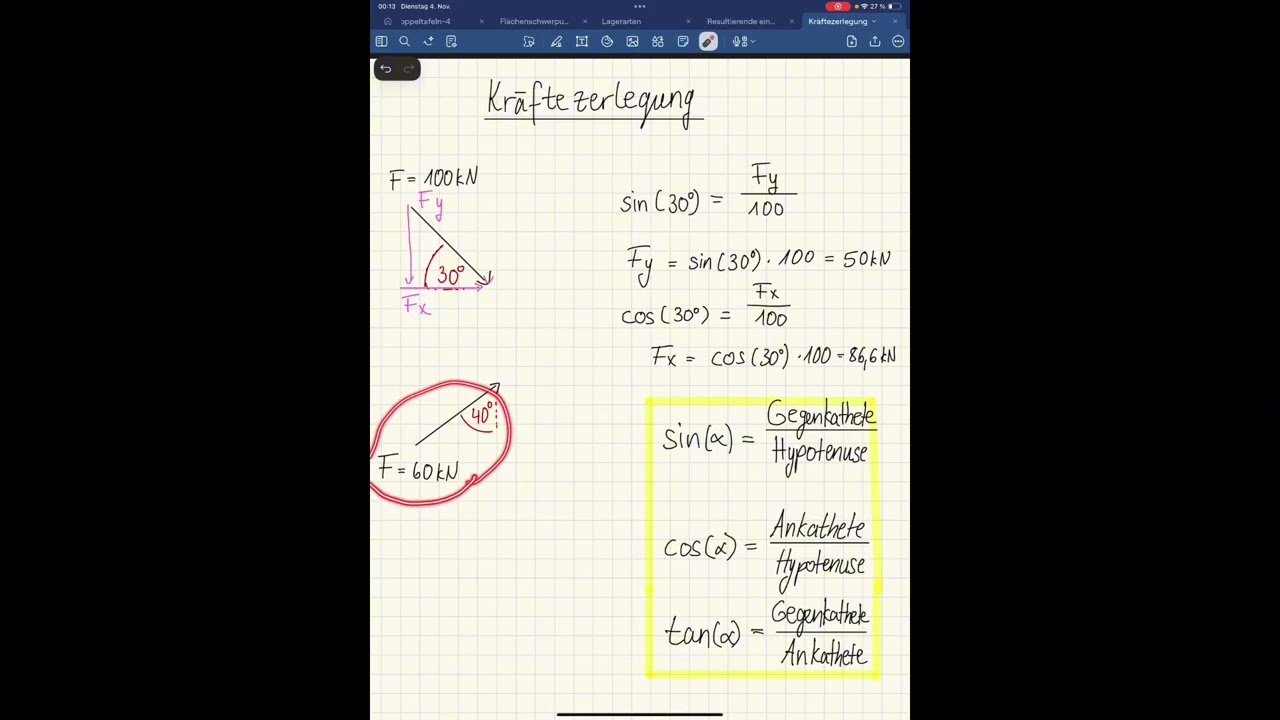 00:13 Dienstag 4. Nov.
27 %
oppeltafeln-4
Flächenschwerpu...
Lagerarten
Resultierende ein...
Kräftezerlegung
Kräftezerlegung
F = 100kN
Fy
30°
Fx
sin(30°) = Fy / 100
Fy = sin(30°) · 100 = 50kN
cos(30°) = Fx / 100
Fx = cos(30°) · 100 = 86,6kN
40°
F = 60kN
sin(α) = Gegenkathete / Hypotenuse
cos(α) = Ankathete / Hypotenuse
tan(α) = Gegenkathete / Ankathete